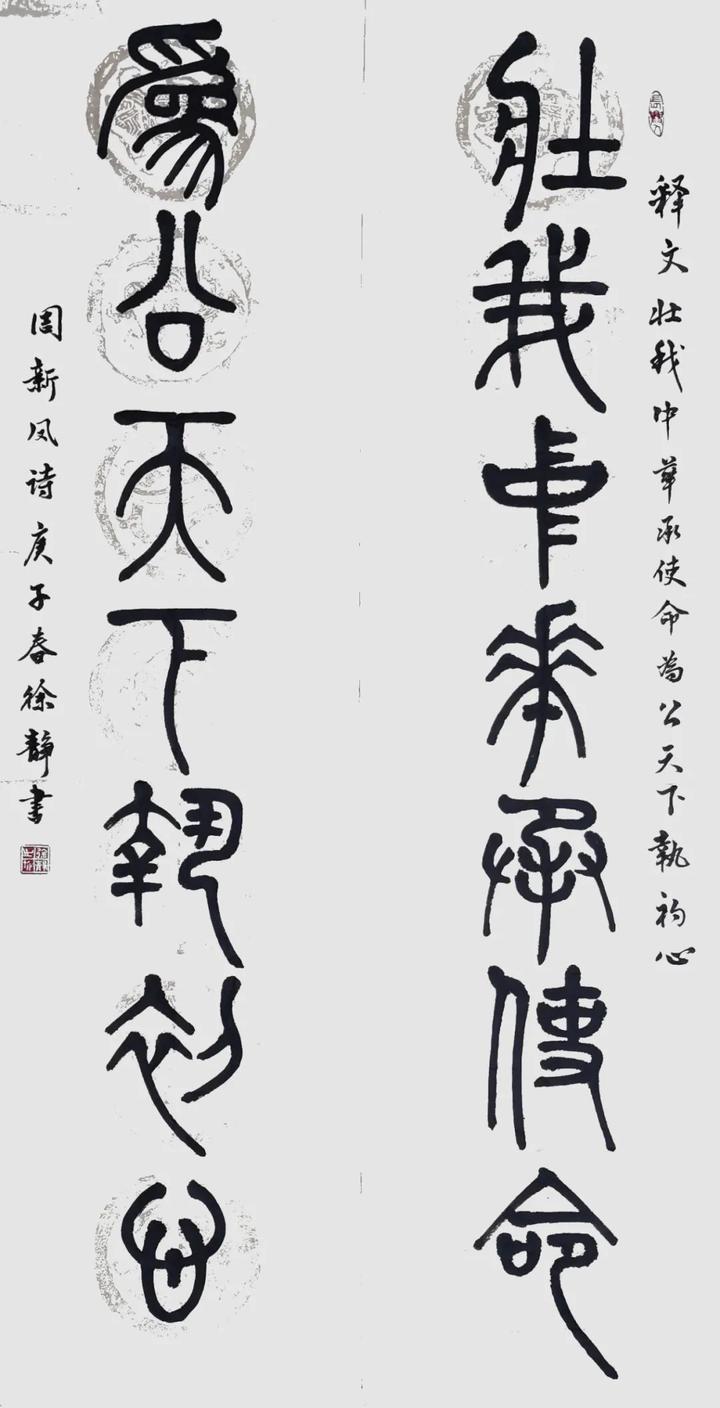 释文壮我中华承使命为公天下執初心
壯我中華承使命
爲公天下執初心
周新凤诗庚子春徐静书